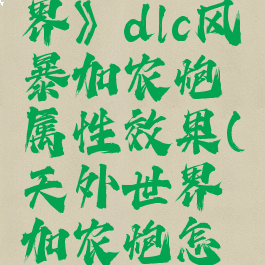 界》dlc风
暴加农炮
属性效果(
天外世界
加农炮怎